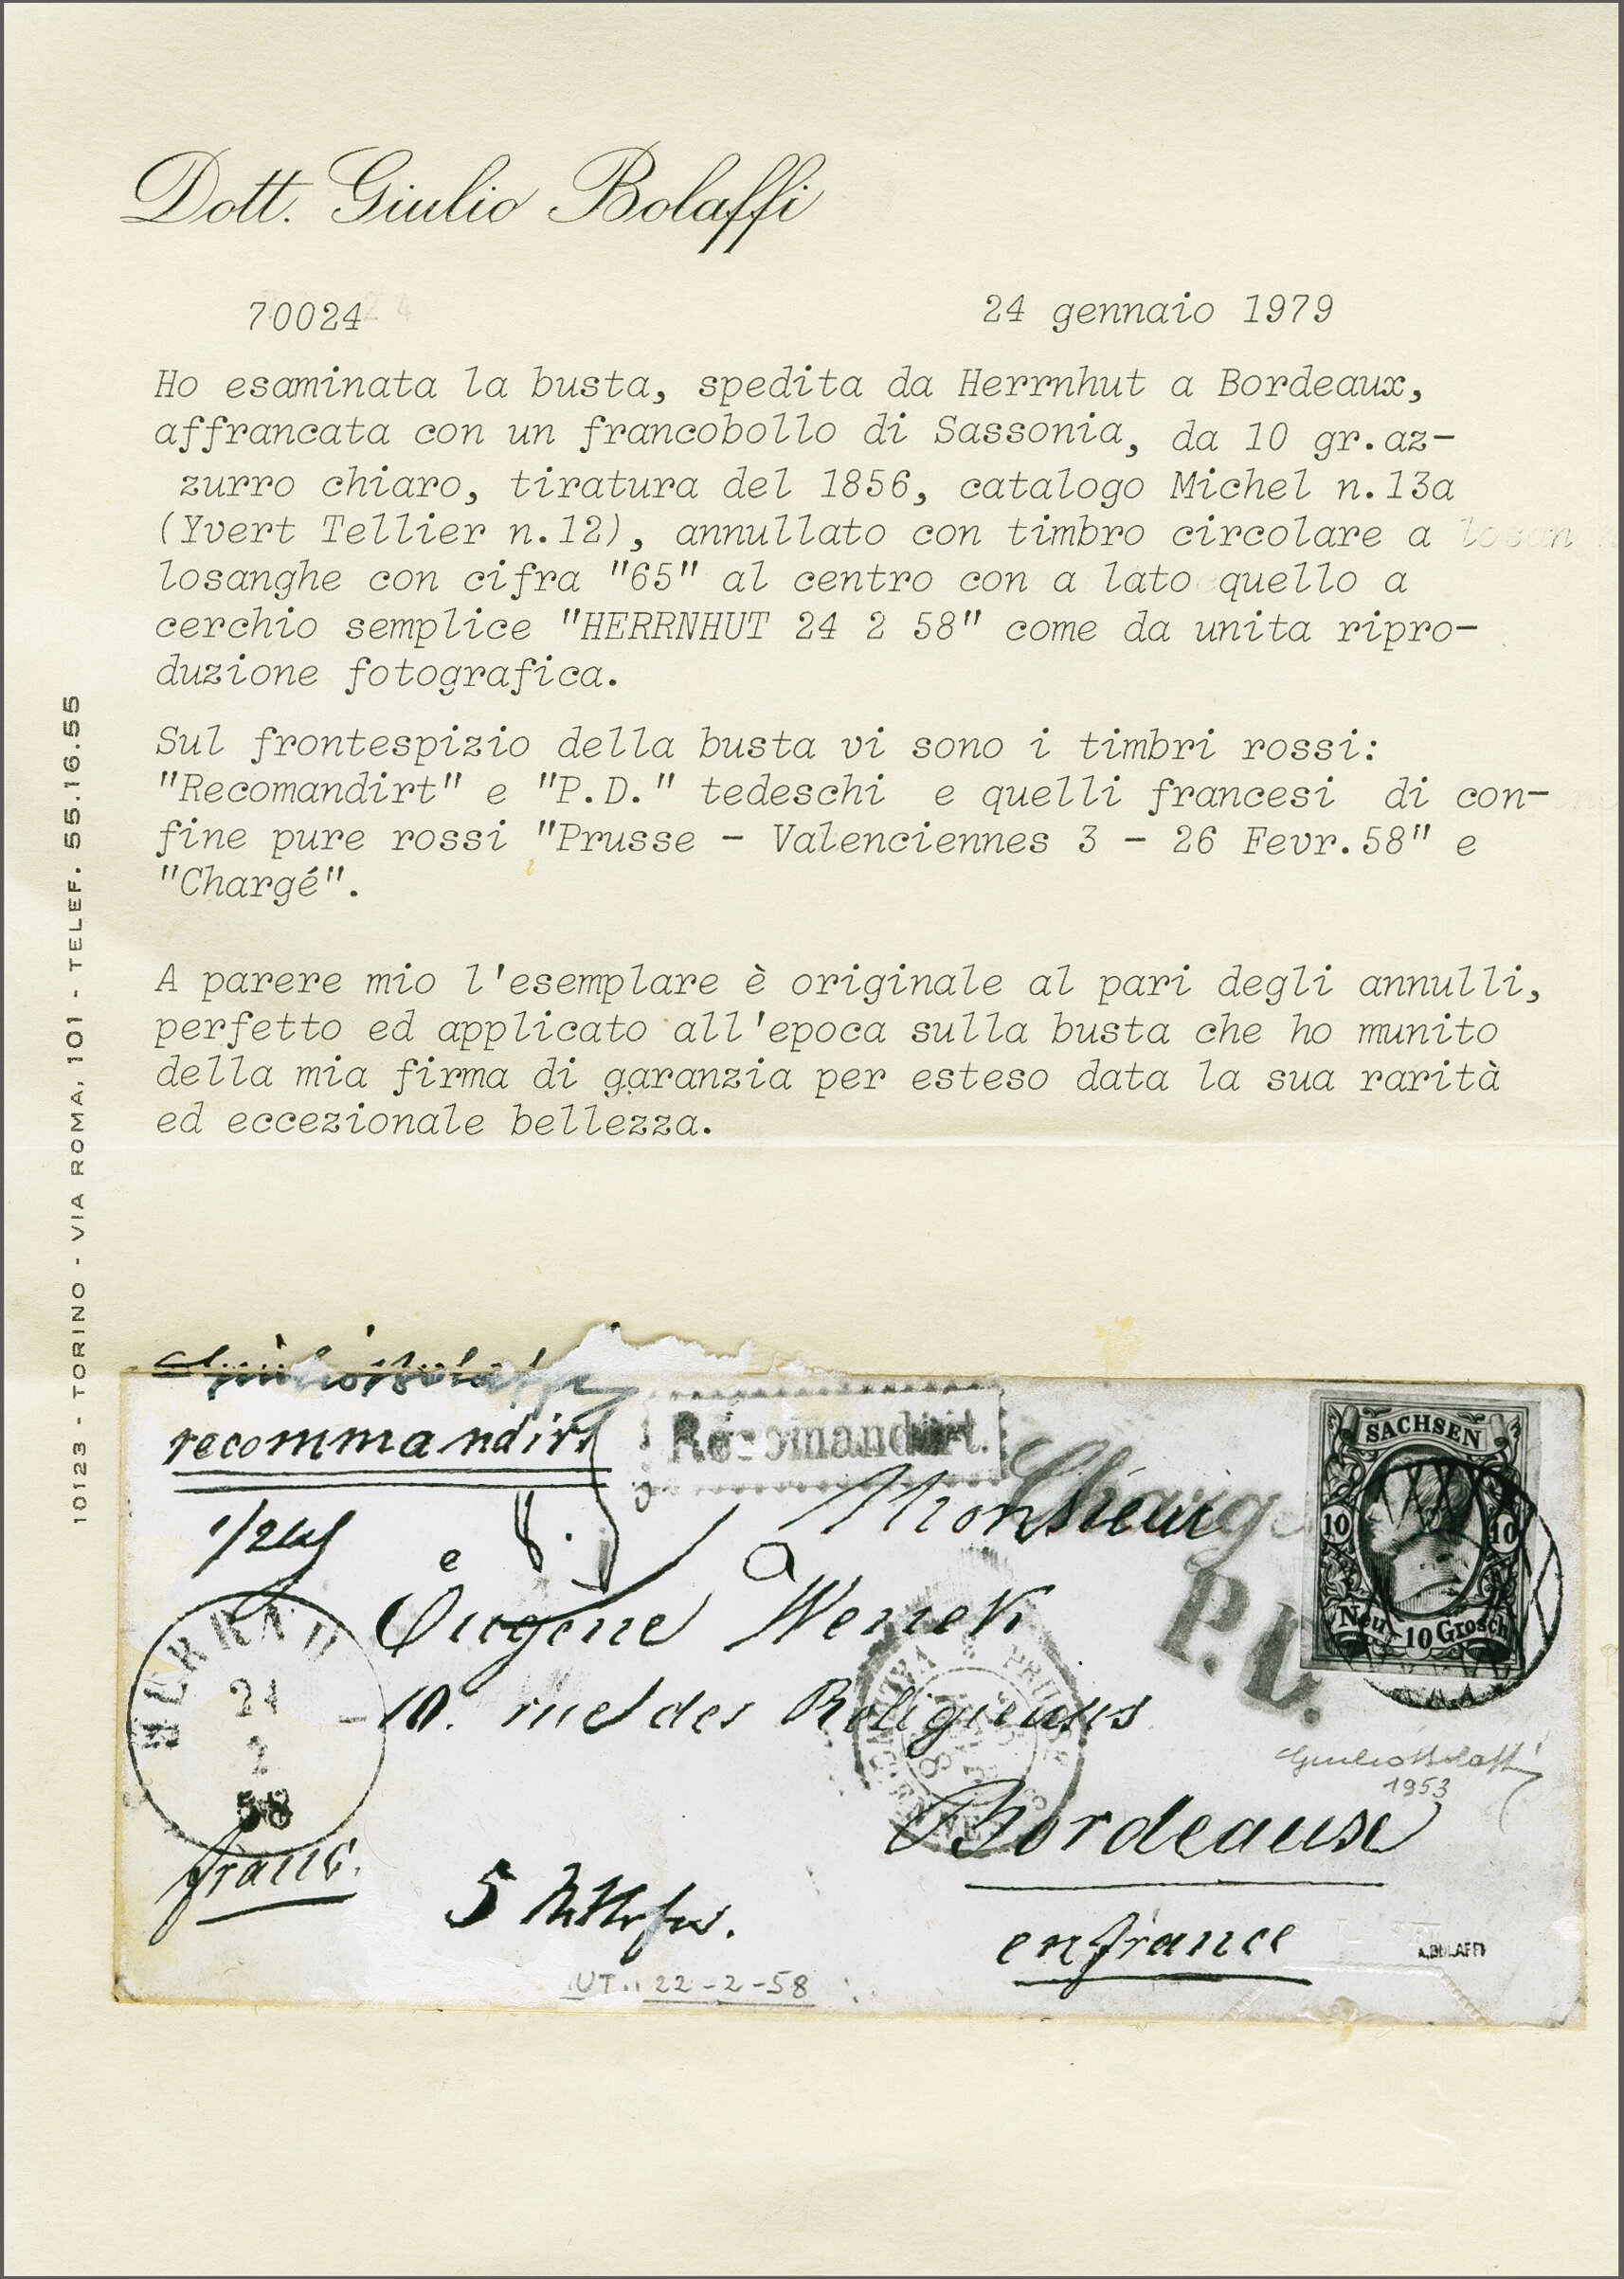 Dott. Giulio Bolaffi
70024
24 gennaio 1979
Ho esaminata la busta, spedita da Herrnhut a Bordeaux,
affrancata con un francobollo di Sassonia, da 10 gr.az-
zurro chiaro, tiratura del 1856, catalogo Michel n.13a
(Yvert Tellier n.12), annullato con timbro circolare a
losanghe con cifra "65" al centro con a lato quello a
cerchio semplice "HERRNHUT 24 2 58" come da unita ripro-
duzione fotografica.
Sul frontespizio della busta vi sono i timbri rossi:
"Recomandirt" e "P.D." tedeschi e quelli francesi di con-
fine pure rossi "Prusse - Valenciennes 3 - 26 Fevr.58" e
"Chargé".
A parere mio l'esemplare è originale al pari degli annulli,
perfetto ed applicato all'epoca sulla busta che ho munito
della mia firma di garanzia per esteso data la sua rarità
ed eccezionale bellezza.
10123 - TORINO - VIA ROMA, 101 - TELEF. 55.16.55
recommandirt
Recomandirt.
Monsieur
SACHSEN
10 10
Neu-10 Grosch
P.D.
a
10. rue des Religieuses
24
2
58
Giulio Bolaffi
1953
Bordeaux
franc.
5
en france
A.BOLAFFI
22-2-58